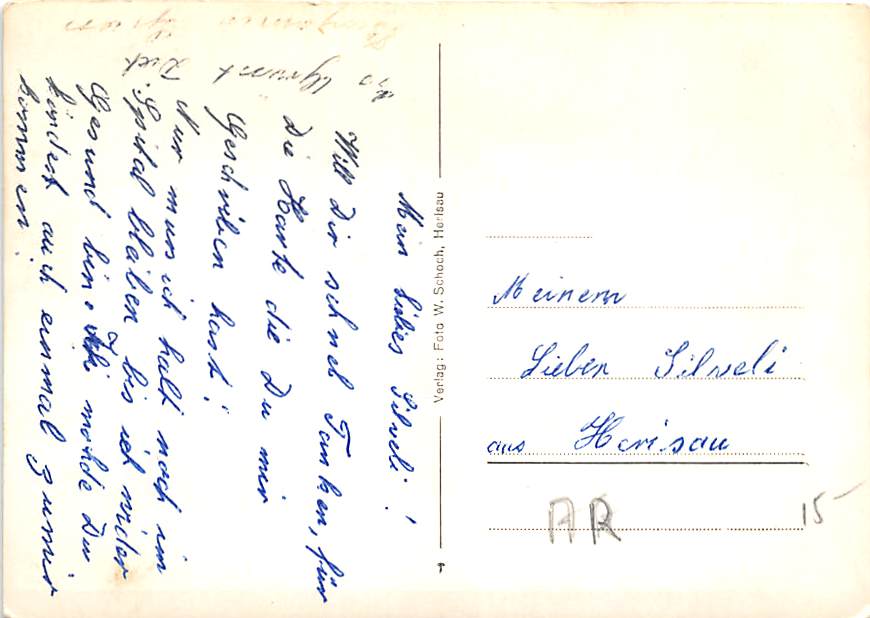 Mein Liebes Silveli!
Will Dir schnel Tanken, für
Die Karte die Du mir
Geschriben hast!
Nur mus ich halt noch im
Spital blaiben bis ich wider
Gesund bin. Ich möchde Du
köndest auch einmal zu mir
kommen
Es Grüsst Dich
Verlag: Foto W. Schoch, Herisau
Meinem
Lieben Silveli
aus Herisau
AR 15